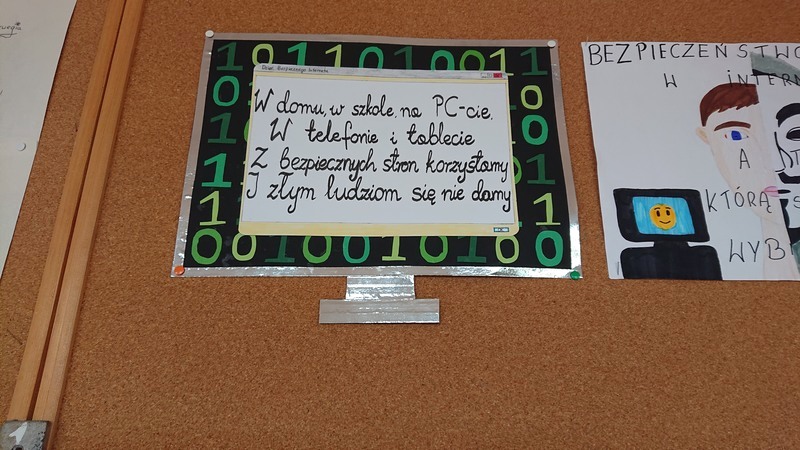 1 0 1 1 0 1 0 0 1 1
Dzień Bezpiecznego Internetu
W domu, w szkole, na PC-cie,
W telefonie i tablecie
Z bezpiecznych stron korzystamy
I złym ludziom się nie damy
0 0 1 0 0 1 0 1 0 0
BEZPIECZEŃSTWO
W INTERN
A
KTÓRĄ S
WYB